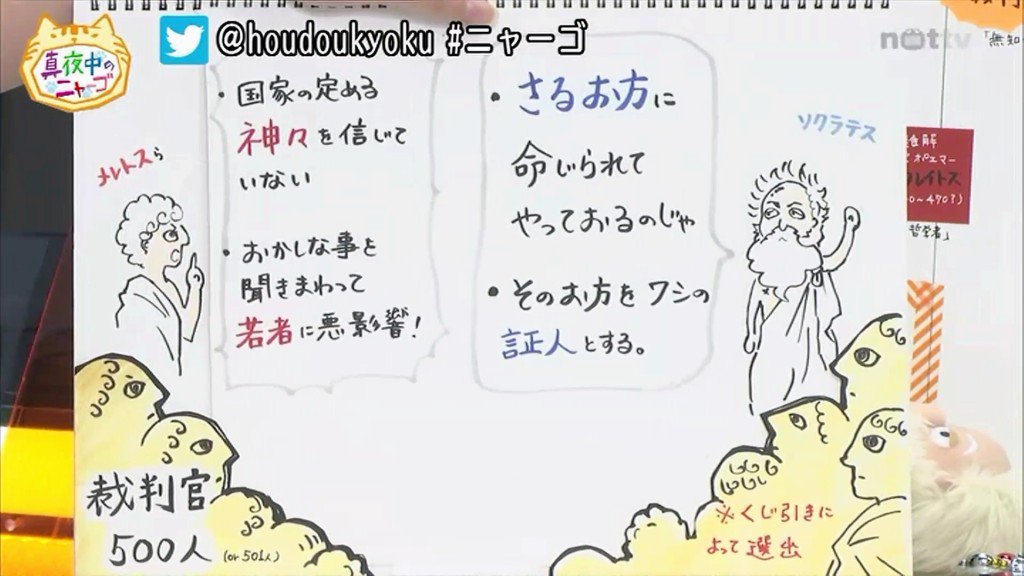 真夜中の
ニャーゴ
@houdoukyoku #ニャーゴ
nottv
メレトスら
・国家の定める
神々を信じて
いない
・おかしな事を
聞きまわって
若者に悪影響！
・さるお方に
命じられて
やっておるのじゃ
・そのお方をワシの
証人とする。
ソクラテス
裁判官
500人 (or 501人)
※くじ引きに
よって選出
「無知
オポエマー
0〜470?)
哲学者」